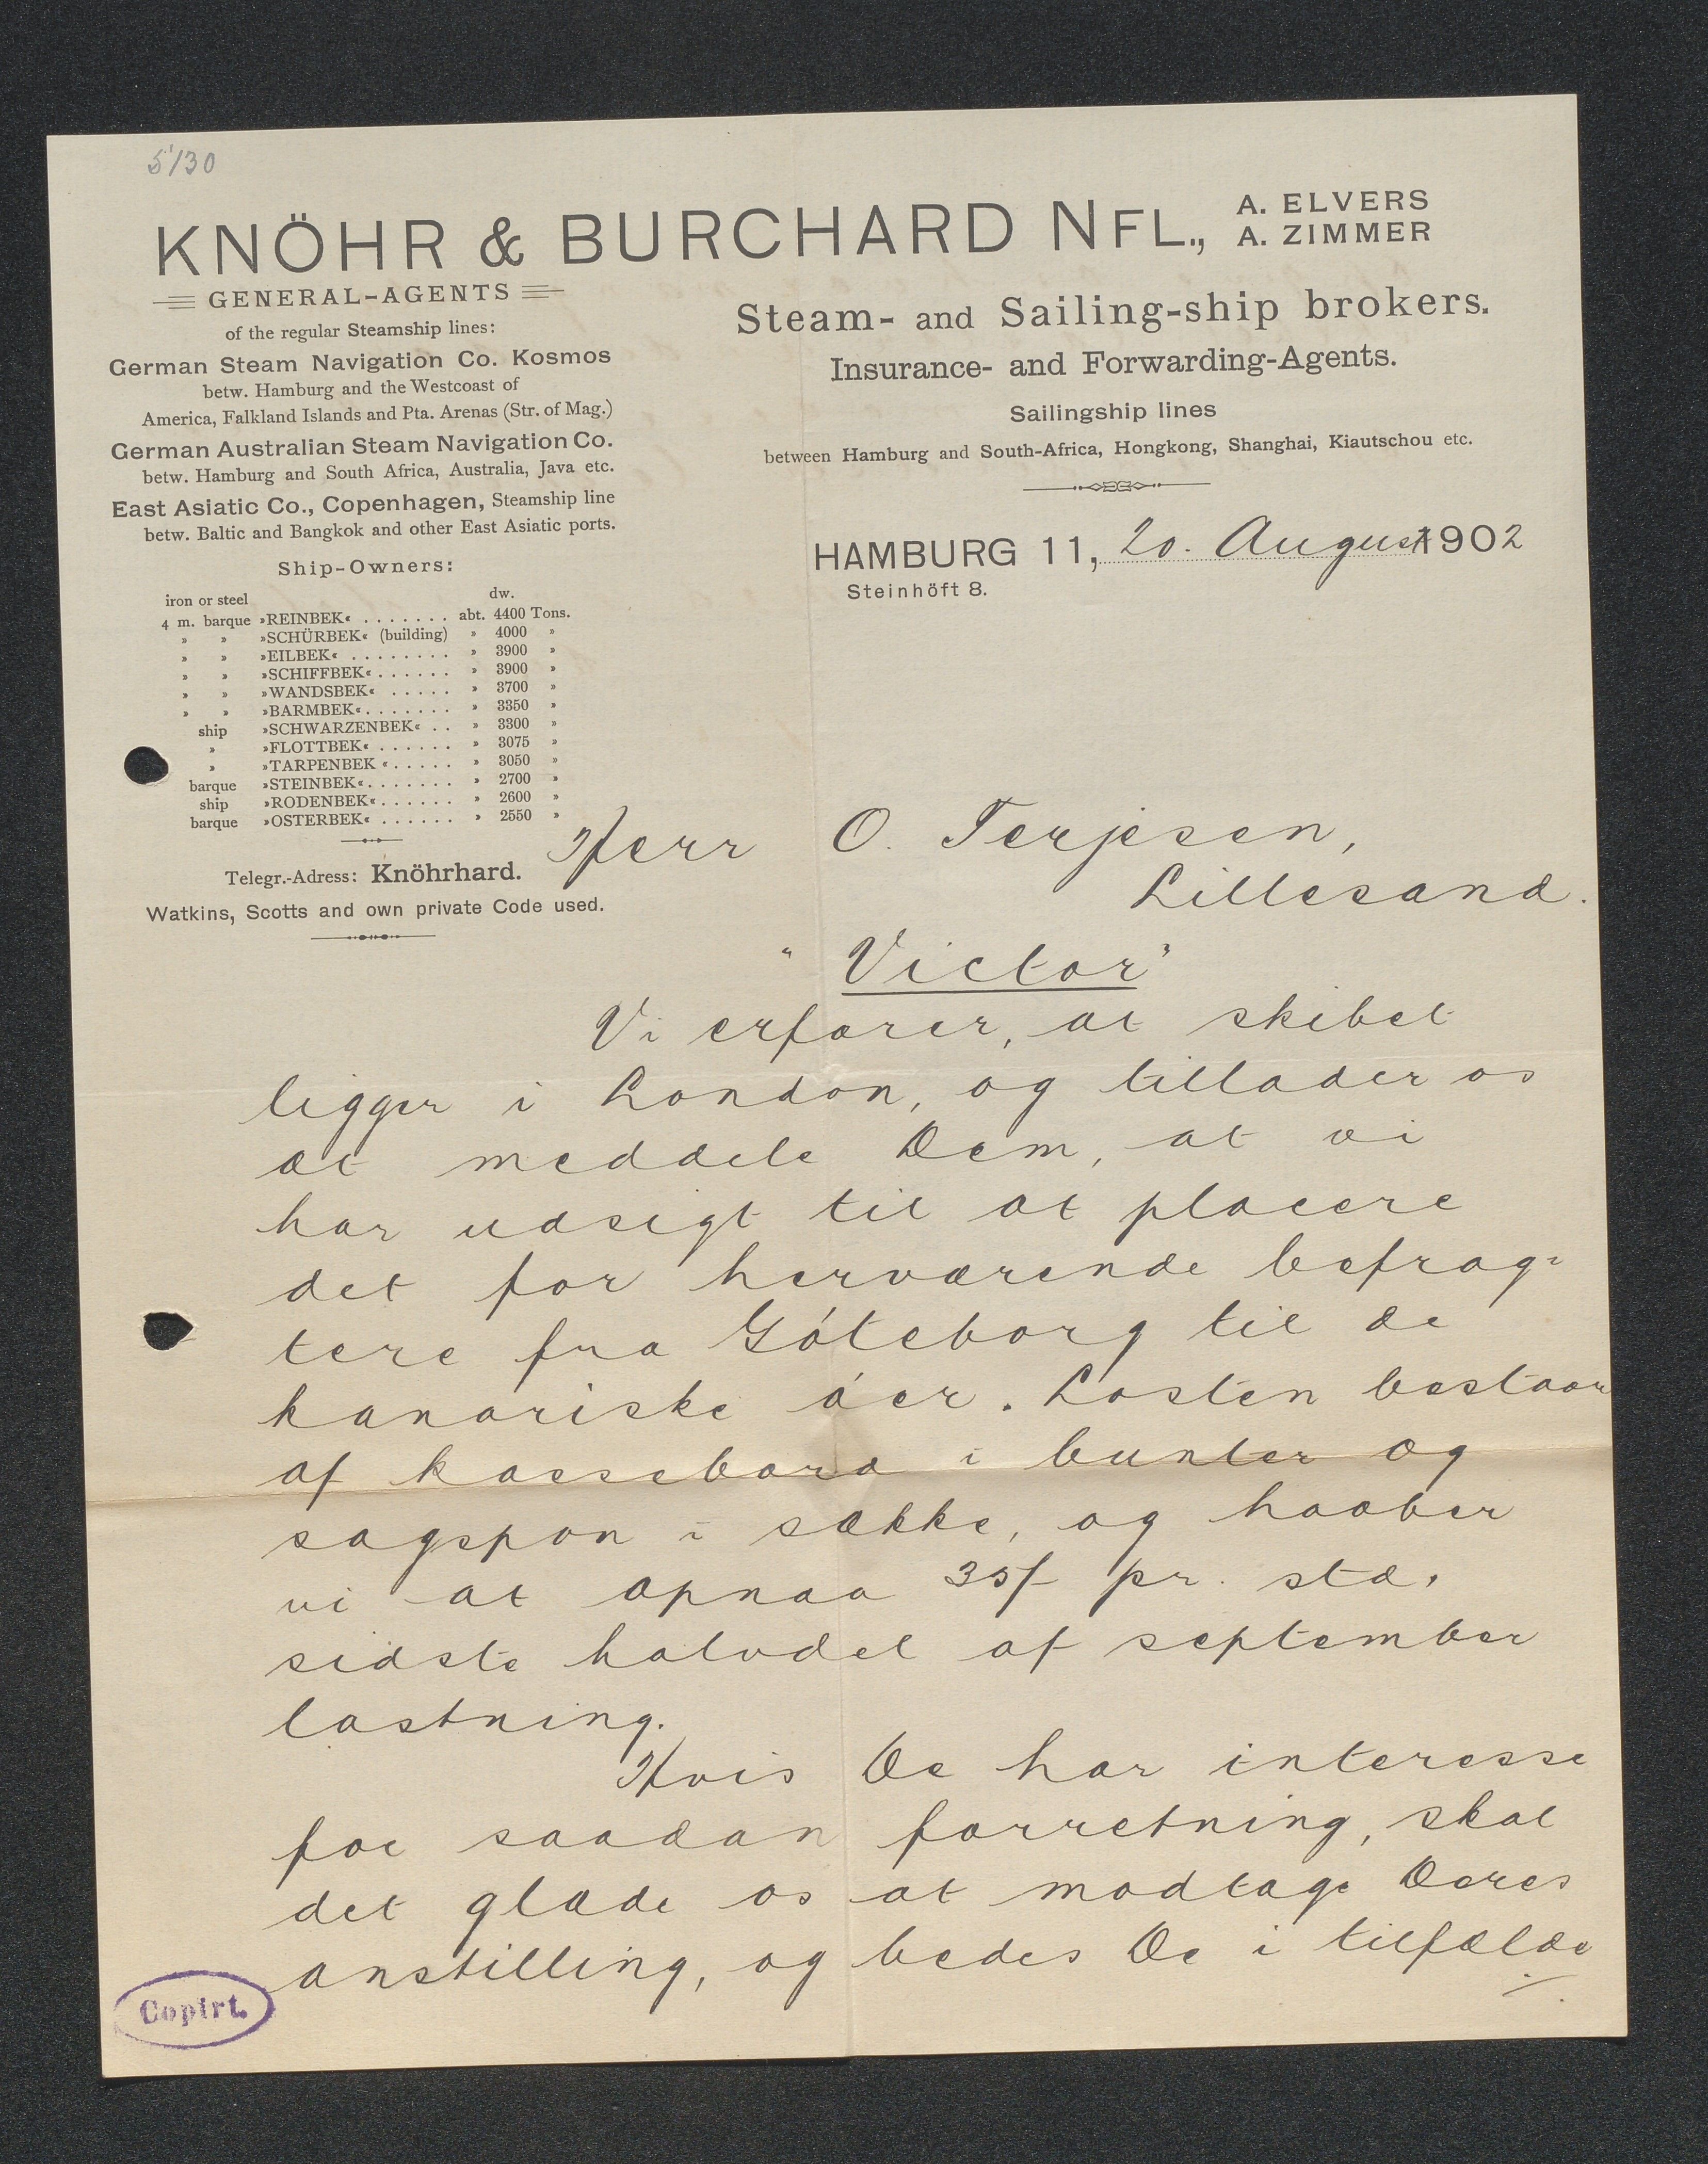 5/30
KNÖHR & BURCHARD NFL.,
A. ELVERS
A. ZIMMER
GENERAL-AGENTS
of the regular Steamship lines:
German Steam Navigation Co. Kosmos
betw. Hamburg and the Westcoast of
America, Falkland Islands and Pta. Arenas (Str. of Mag.)
German Australian Steam Navigation Co.
betw. Hamburg and South Africa, Australia, Java etc.
East Asiatic Co., Copenhagen, Steamship line
betw. Baltic and Bangkok and other East Asiatic ports.
Ship-Owners:
iron or steel dw.
4 m. barque »REINBEK« . . . . . . . abt. 4400 Tons.
» » »SCHÜRBEK« (building) » 4000 »
» » »EILBEK« . . . . . . . . . » 3900 »
» » »SCHIFFBEK« . . . . . . » 3900 »
» » »WANDSBEK« . . . . . » 3700 »
» » »BARMBEK« . . . . . . . » 3350 »
ship »SCHWARZENBEK« . . » 3300 »
» »FLOTTBEK« . . . . . . » 3075 »
» »TARPENBEK « . . . . . » 3050 »
barque »STEINBEK« . . . . . . . » 2700 »
ship »RODENBEK« . . . . . . » 2600 »
barque »OSTERBEK« . . . . . . » 2550 »
Telegr.-Adress: Knöhrhard.
Watkins, Scotts and own private Code used.
Steam- and Sailing-ship brokers.
Insurance- and Forwarding-Agents.
Sailingship lines
between Hamburg and South-Africa, Hongkong, Shanghai, Kiautschou etc.
HAMBURG 11, 20. August 1902
Steinhöft 8.
Herr O. Terjesen,
Lillesand.
"Victor"
Vi erfarer, at skibet
ligger i London, og tillader os
at meddele Dem, at vi
har udsigt til at placere
det for herværende befrag=
tere fra Göteborg til de
kanariske óer. Lasten bestaar
af kassebord i bunter og
sagspon i sække, og haaber
vi at opnaa 35/- pr. std.
sidste halvdel af september
lastning.
Hvis De har interesse
for saadan forretning, skal
det glæde os at modtage Deres
anstilling, og bedes De i tilfælde
./.
Copirt.